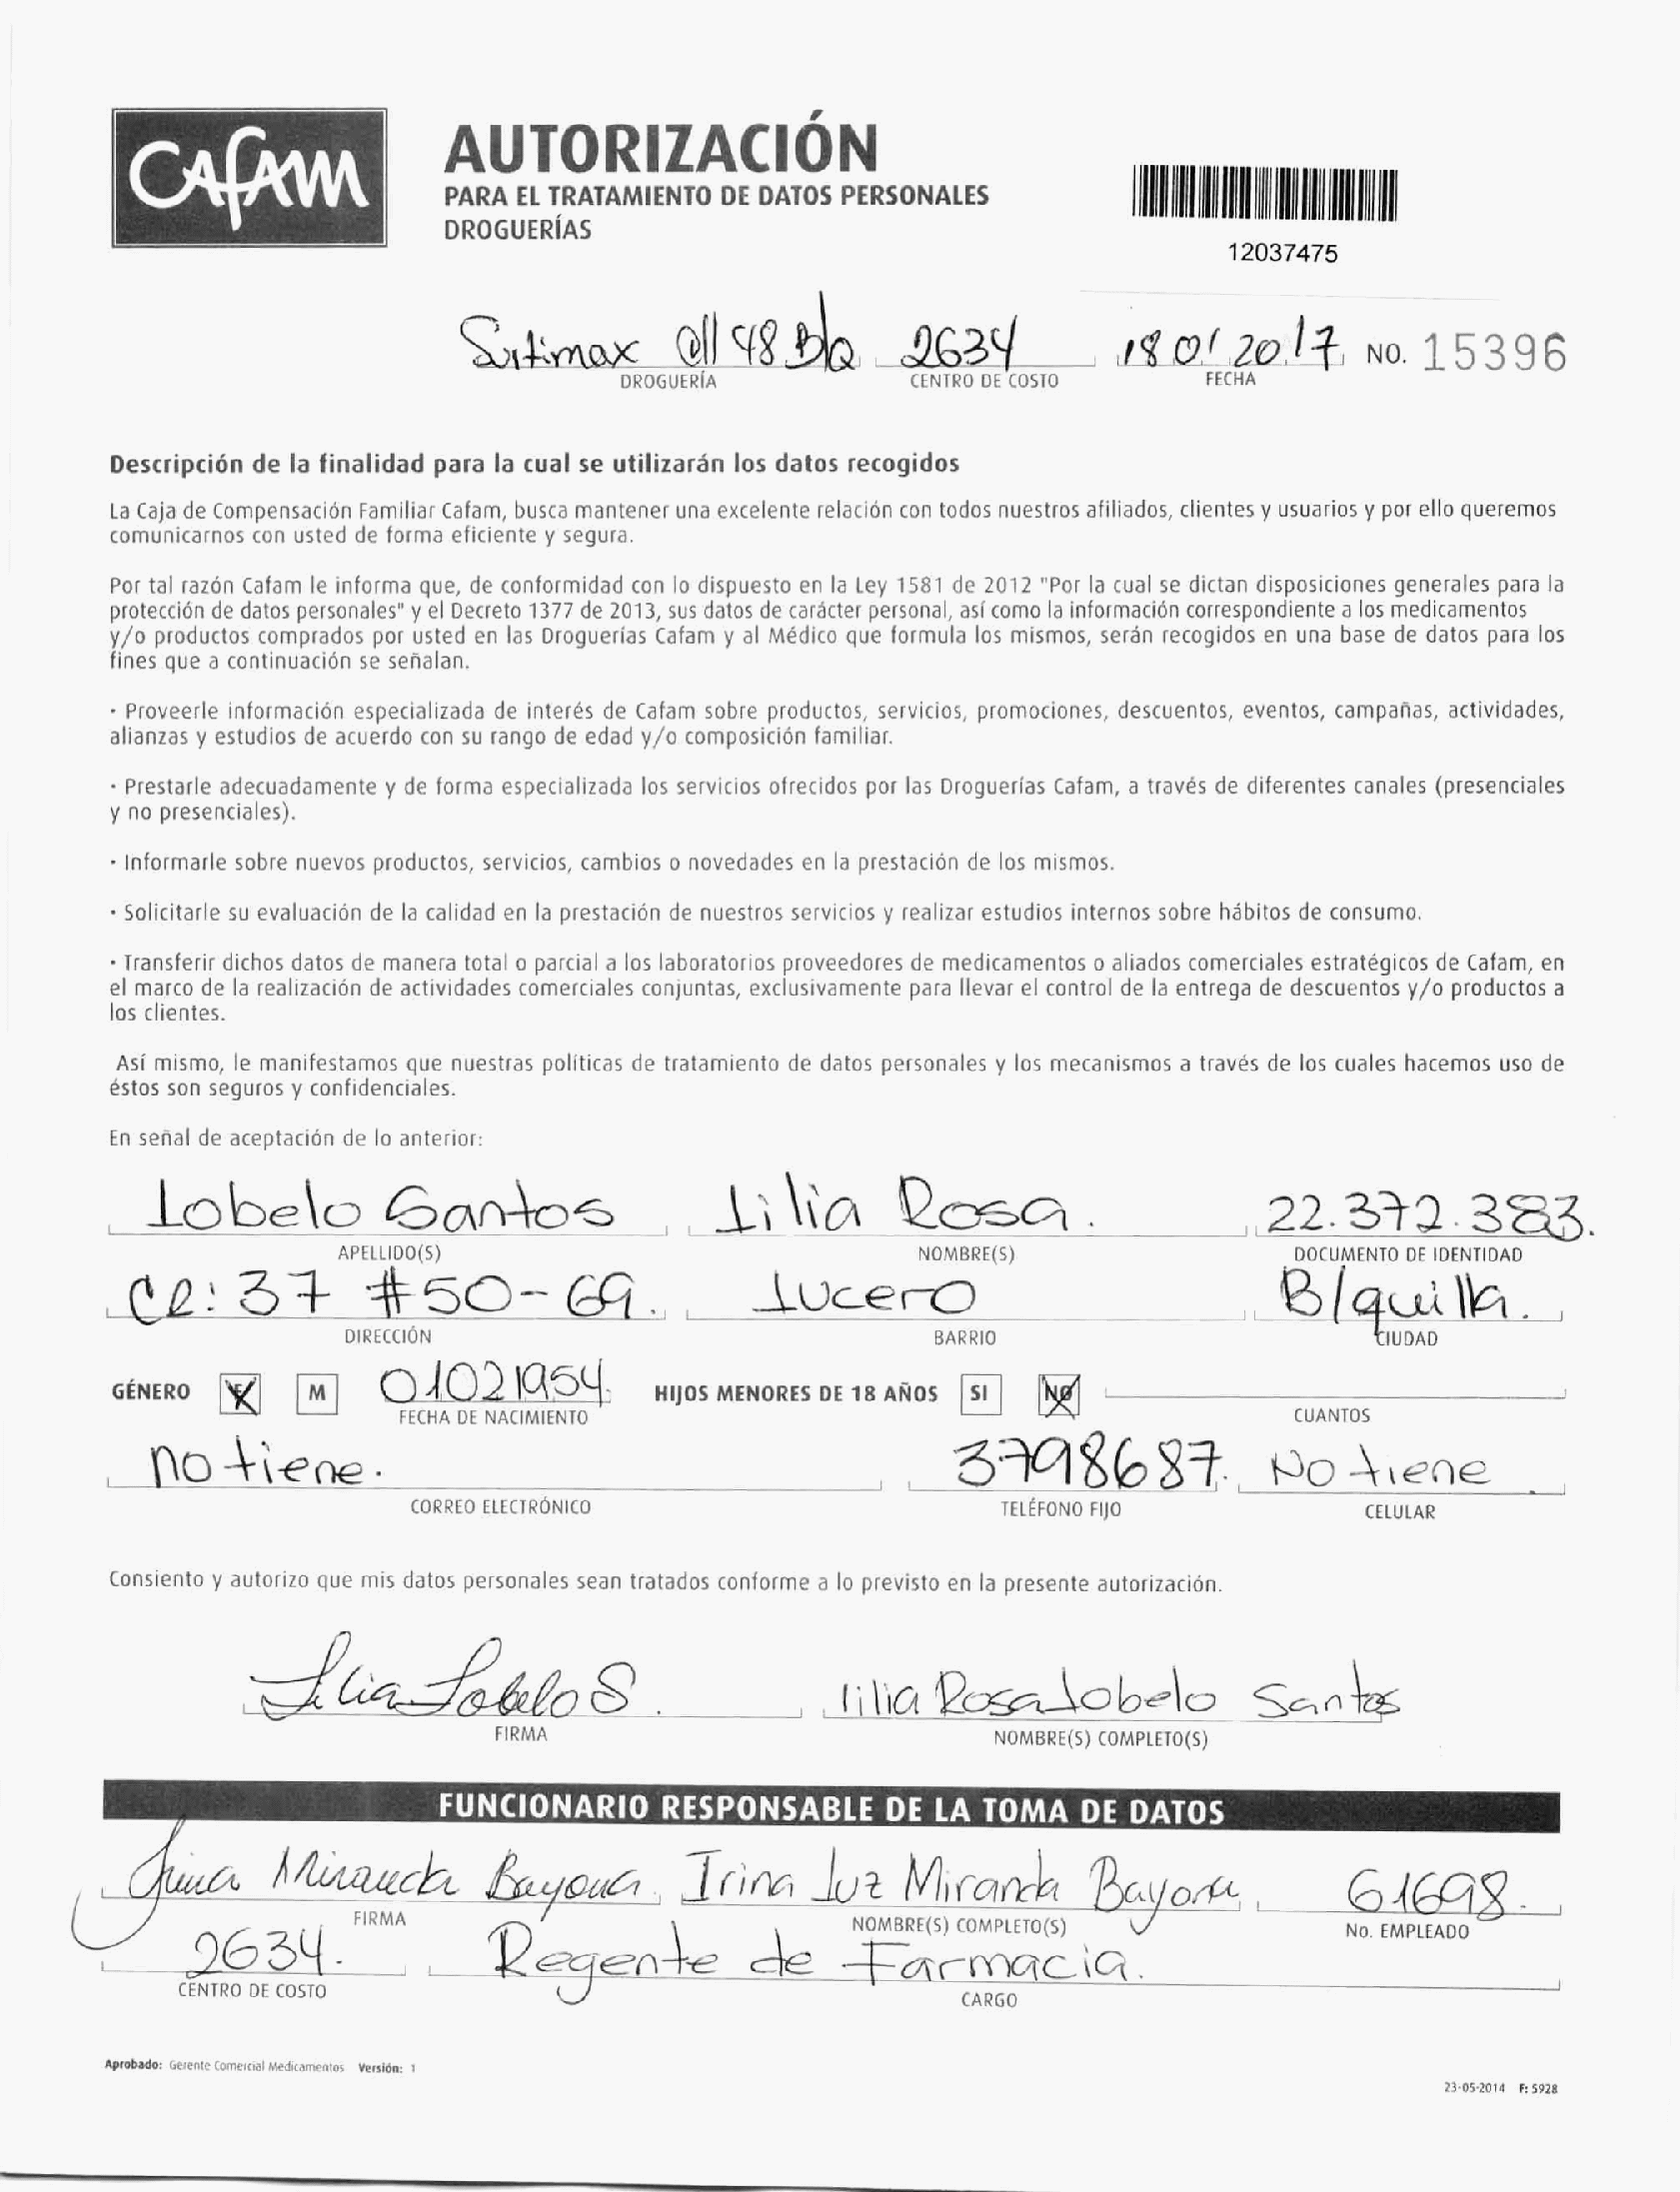 CAFAM
AUTORIZACIÓN
PARA EL TRATAMIENTO DE DATOS PERSONALES
DROGUERÍAS
12037475
Surtimax Cll 48 B/Q 2634 18 01 2017 NO. 15396
DROGUERÍA CENTRO DE COSTO FECHA
Descripción de la finalidad para la cual se utilizarán los datos recogidos
La Caja de Compensación Familiar Cafam, busca mantener una excelente relación con todos nuestros afiliados, clientes y usuarios y por ello queremos
comunicarnos con usted de forma eficiente y segura.
Por tal razón Cafam le informa que, de conformidad con lo dispuesto en la Ley 1581 de 2012 "Por la cual se dictan disposiciones generales para la
protección de datos personales" y el Decreto 1377 de 2013, sus datos de carácter personal, así como la información correspondiente a los medicamentos
y/o productos comprados por usted en las Droguerías Cafam y al Médico que formula los mismos, serán recogidos en una base de datos para los
fines que a continuación se señalan.
· Proveerle información especializada de interés de Cafam sobre productos, servicios, promociones, descuentos, eventos, campañas, actividades,
alianzas y estudios de acuerdo con su rango de edad y/o composición familiar.
· Prestarle adecuadamente y de forma especializada los servicios ofrecidos por las Droguerías Cafam, a través de diferentes canales (presenciales
y no presenciales).
· Informarle sobre nuevos productos, servicios, cambios o novedades en la prestación de los mismos.
· Solicitarle su evaluación de la calidad en la prestación de nuestros servicios y realizar estudios internos sobre hábitos de consumo.
· Transferir dichos datos de manera total o parcial a los laboratorios proveedores de medicamentos o aliados comerciales estratégicos de Cafam, en
el marco de la realización de actividades comerciales conjuntas, exclusivamente para llevar el control de la entrega de descuentos y/o productos a
los clientes.
Así mismo, le manifestamos que nuestras políticas de tratamiento de datos personales y los mecanismos a través de los cuales hacemos uso de
éstos son seguros y confidenciales.
En señal de aceptación de lo anterior:
Lobelo Santos Lilia Rosa. 22.372.383.
APELLIDO(S) NOMBRE(S) DOCUMENTO DE IDENTIDAD
CR: 37 #50-69. Lucero B/quilla.
DIRECCIÓN BARRIO CIUDAD
GÉNERO F M 01021954. HIJOS MENORES DE 18 AÑOS SI NO
FECHA DE NACIMIENTO CUANTOS
no tiene. 3798687. No tiene
CORREO ELECTRÓNICO TELÉFONO FIJO CELULAR
Consiento y autorizo que mis datos personales sean tratados conforme a lo previsto en la presente autorización.
Lilia Lobelo S. lilia Rosa Lobelo Santos
FIRMA NOMBRE(S) COMPLETO(S)
FUNCIONARIO RESPONSABLE DE LA TOMA DE DATOS
Irina Miranda Bayona Irina Luz Miranda Bayona 61698.
FIRMA NOMBRE(S) COMPLETO(S) No. EMPLEADO
2634. Regente de Farmacia.
CENTRO DE COSTO CARGO
Aprobado: Gerente Comercial Medicamentos Versión: 1
23-05-2014 F: 5928